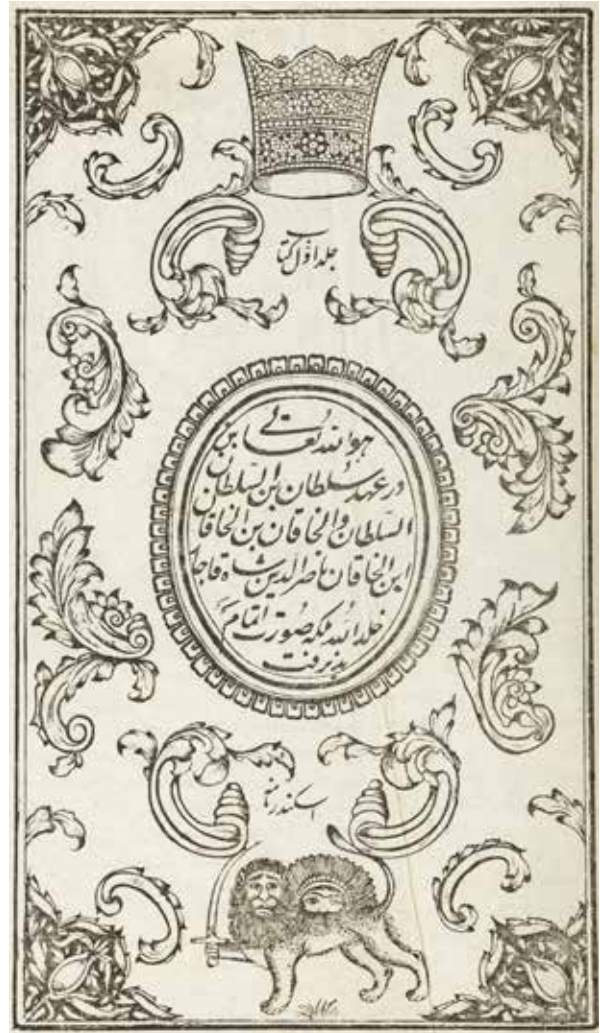 جلد اوّل کتاب
هو الله تعالی
در عهد سلطان بن السّلطان بن
السّلطان والخاقان بن الخاقان
ابن الخاقان ناصر الدین شاه قاجار
خلد الله ملکه صورت اتمام
پذیرفت
اسکندرنامه